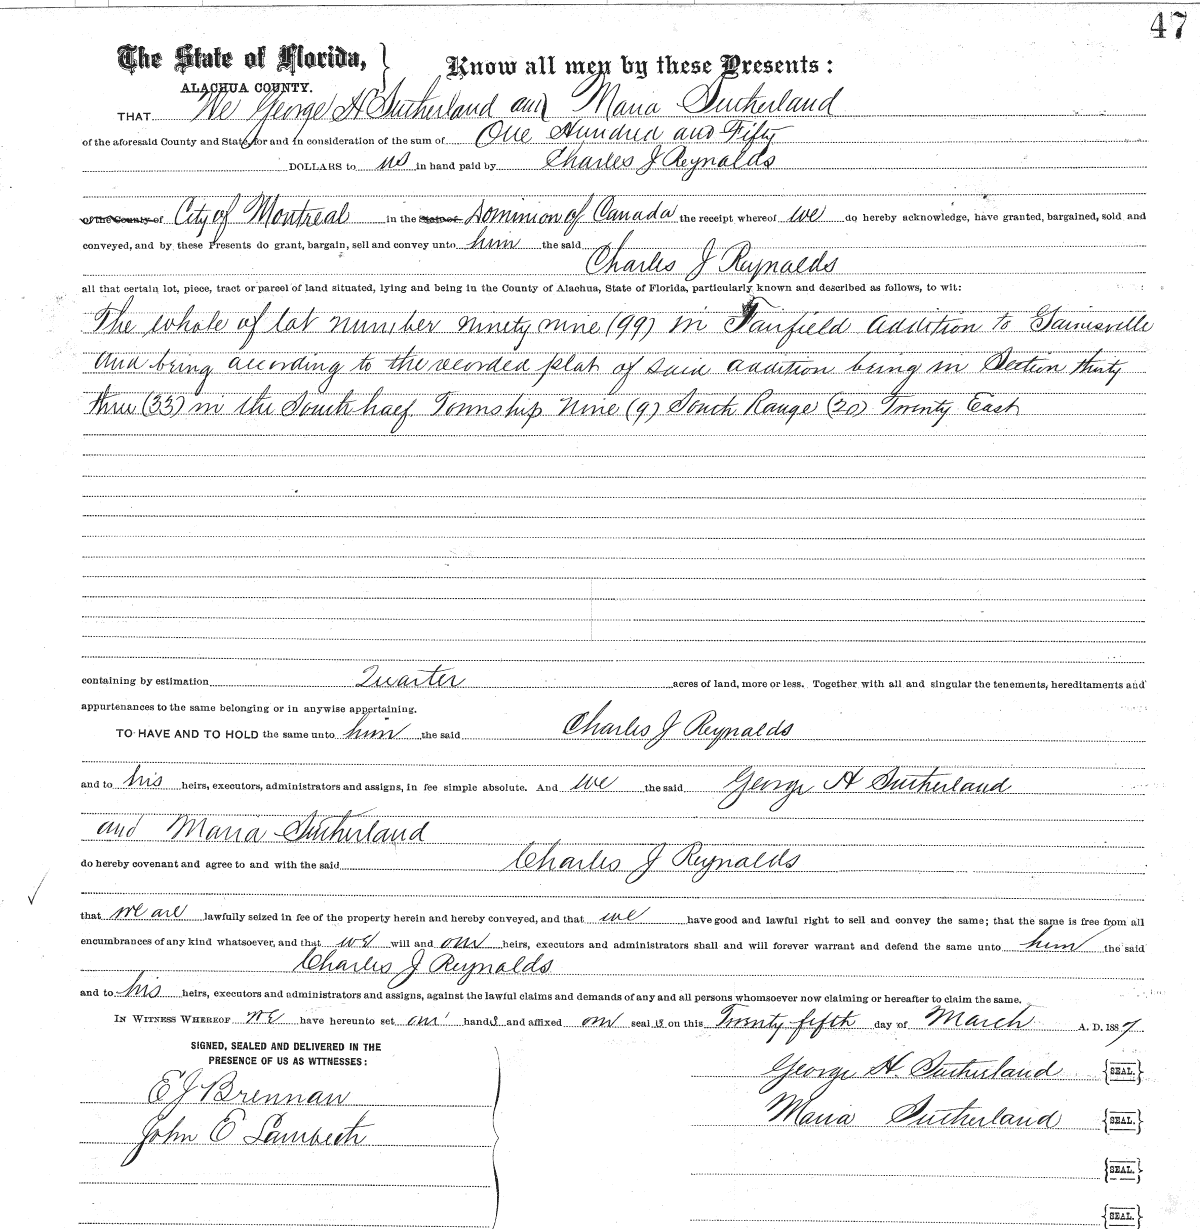 47
The State of Florida, } Know all men by these Presents:
ALACHUA COUNTY.
THAT We George H Sutherland and Maria Sutherland
of the aforesaid County and State, for and in consideration of the sum of One Hundred and Fifty
DOLLARS to us in hand paid by Charles J Reynolds
of the County of City of Montreal in the State of Dominion of Canada the receipt whereof we do hereby acknowledge, have granted, bargained, sold and
conveyed, and by these Presents do grant, bargain, sell and convey unto him the said
Charles J Reynolds
all that certain lot, piece, tract or parcel of land situated, lying and being in the County of Alachua, State of Florida, particularly known and described as follows, to wit:
The whole of lot number ninety nine (99) in Fairfield addition to Gainesville
and being according to the recorded plat of said addition being in Section thirty
three (33) in the South half Township Nine (9) South Range (20) Twenty East
containing by estimation Quarter acres of land, more or less. Together with all and singular the tenements, hereditaments and
appurtenances to the same belonging or in anywise appertaining.
TO HAVE AND TO HOLD the same unto him the said Charles J Reynolds
and to his heirs, executors, administrators and assigns, in fee simple absolute. And we the said George H Sutherland
and Maria Sutherland
do hereby covenant and agree to and with the said Charles J Reynolds
that we are lawfully seized in fee of the property herein and hereby conveyed, and that we have good and lawful right to sell and convey the same; that the same is free from all
encumbrances of any kind whatsoever, and that we will and our heirs, executors and administrators shall and will forever warrant and defend the same unto him the said
Charles J Reynolds
and to his heirs, executors and administrators and assigns, against the lawful claims and demands of any and all persons whomsoever now claiming or hereafter to claim the same.
IN WITNESS WHEREOF we have hereunto set our hands and affixed our seals on this Twenty fifth day of March A. D. 1887
SIGNED, SEALED AND DELIVERED IN THE
PRESENCE OF US AS WITNESSES:
George H. Sutherland {SEAL.}
E J Brennan
Maria Sutherland {SEAL.}
John E Lambeth
{SEAL.}
{SEAL.}